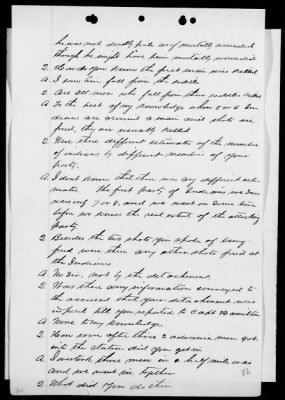 he was not deadly pale as if mortally wounded
though he might have been mortally wounded
Q. How do you know the first man was killed
A I saw him fall from the saddle
Q. Are all men who fall from their saddles killed
A To the best of my knowledge when 5 or 6 In-
dians are around a man and shots are
fired, they are usually killed
Q Were there different estimates of the number
of indians by different members of your
party.
A I dont know that there was any different esti-
mates. The first party of Indians we saw
were 7 or 8, and we went on some time
before we knew the real extent of the attacking
party.
Q Besides the two shots you spoke of being
fired were there any other shots fired at
the Indians
A No Sir, not by the detachment.
Q Was there any information conveyed to
the accused that your detachment was
in peril till you reported to Capt Hamilton
A None to my knowledge
Q How soon after those 2 advance men got
into the station did you get in
A I overtook those men in a half mile or so
and we went in together
Q What did you do then
86